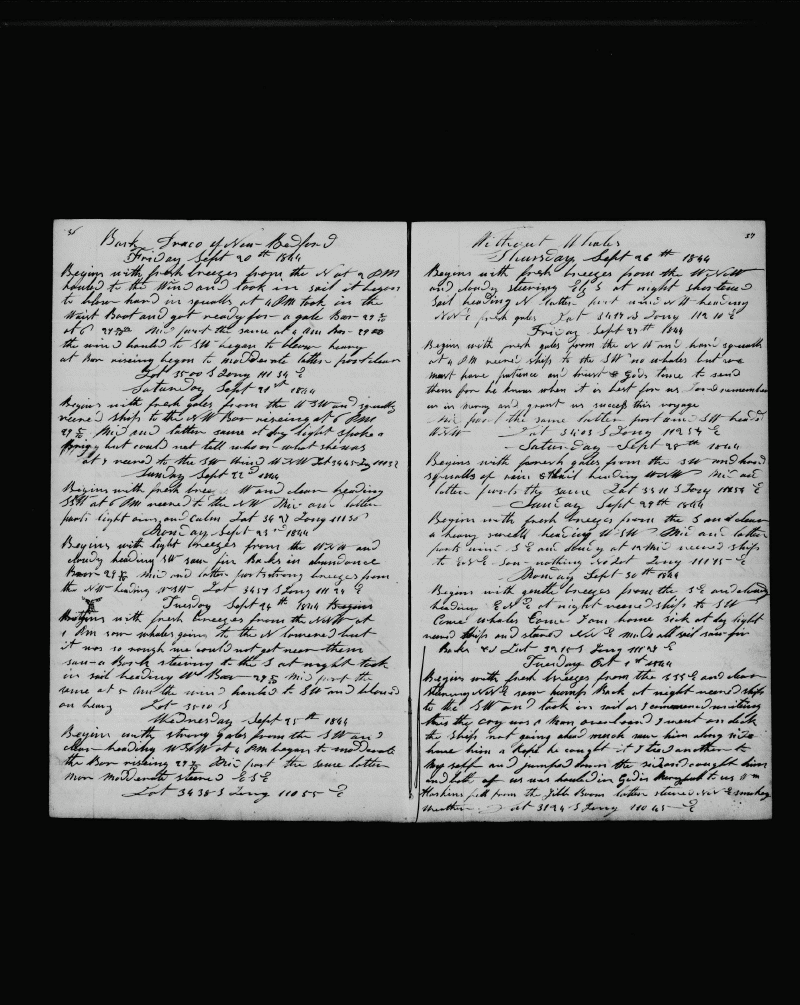 36
Bark Draco of New Bedford
Friday Sept 20th 1844
Begins with fresh breezes from the N at 2 PM
hauled to the Wind and took in sail it began
to blow hard in squalls at 4 PM took in the
Waist Boat and got ready for a gale Bar 29
at 6 Mid part the same at 2 Am Bar 29 00
the wind hauled to SW began to blow heavy
at Bar rising began to moderate latter part clear
Lat 35 00 S Long 111 34 E
Saturday Sept 21st 1844
Begins with fresh gales from the WSW and squally
veered ship to the NW Bar rising at 6 PM
29 Mid and latter same at day light spoke a
Brig but could not tell who or what she was
at 9 veered to the SW Wind WNW Lat 34 45 Lg 110 32
Sunday Sept 22d 1844
Begins with fresh breezes W and clear heading
SSW at 6 PM veered to the NW Mid and latter
parts light airs and Calm Lat 34 21 Long 111 30
Monday Sept 23rd 1844
Begins with light breezes from the WNW and
cloudy heading SW saw fin Backs in abundance
Bar 29 Mid and latter part strong breezes from
the NW heading WSW Lat 34 57 S Long 111 24 E
Tuesday Sept 24th 1844 Begins
Begins with fresh breezes from the NNW at
1 PM saw whales going to the N lowered but
it was so rough we could not get near them
saw a Bark steering to the S at night took
in sail heading W Bar 29 Mid part the
same at 5 Am the wind hauled to SW and blowed
on heavy Lat 35 10 S
Wednesday Sept 25th 1844
Begins with strong gales from the SW and
clear heading WNW at 4 PM began to moderate
the Bar rising 29 Mid part the same latter
more moderate steered ESE
Lat 34 38 S Long 110 55 E
37
Without Whales
Thursday Sept 26th 1844
Begins with fresh breezes from the WNW
and cloudy steering EbS at night shortened
sail heading N latter part wind NW heading
NNE fresh gales Lat 34 17 S Long 112 10 E
Friday Sept 27th 1844
Begins with fresh gales from the NW and hard squalls
at 4 PM veered ship to the SW no whales but we
must have patience and trust to Gods time to send
them for he knows when it is best for us Lord remember
us in mercy and grant us success this voyage
Mid part the same latter part wind SW heading
WNW Lat 34 03 S Long 112 54 E
Saturday Sept 28th 1844
Begins with fresh gales from the SW and hard
squalls of rain & hail heading WNW Mid and
latter parts the same Lat 33 11 S Long 110 54 E
Sunday Sept 29th 1844
Begins with fresh breezes from the S and clear
a heavy swell heading WSW Mid and latter
parts wind SE and cloudy at 12 Mid veered ship
to ENE saw nothing No Lat Long 111 15 E
Monday Sept 30th 1844
Begins with gentle breezes from the SE and cloudy
heading ENE at night veered ship to SW
Come whales Come I am home sick at day light
veered ship and steered NNE made all sail saw fin
Backs &c Lat 32 15 S Long 111 21 E
Tuesday Oct 1st 1844
Begins with fresh breezes from the SSE and clear
steering NNE saw hump Back at night veered ship
to the SW and took in sail as I commenced writing
this the cry was a Man overboard I went on deck
the ship not going ahead much saw him along side
hove him a rope he caught it I tied another to
my self and jumped down the side and caught him
and both of us was hauled in God is Merciful to us Wm
Haskins fell from the Jibb Boom latter steered NNE smokey
weather Lat 31 24 S Long 110 45 E